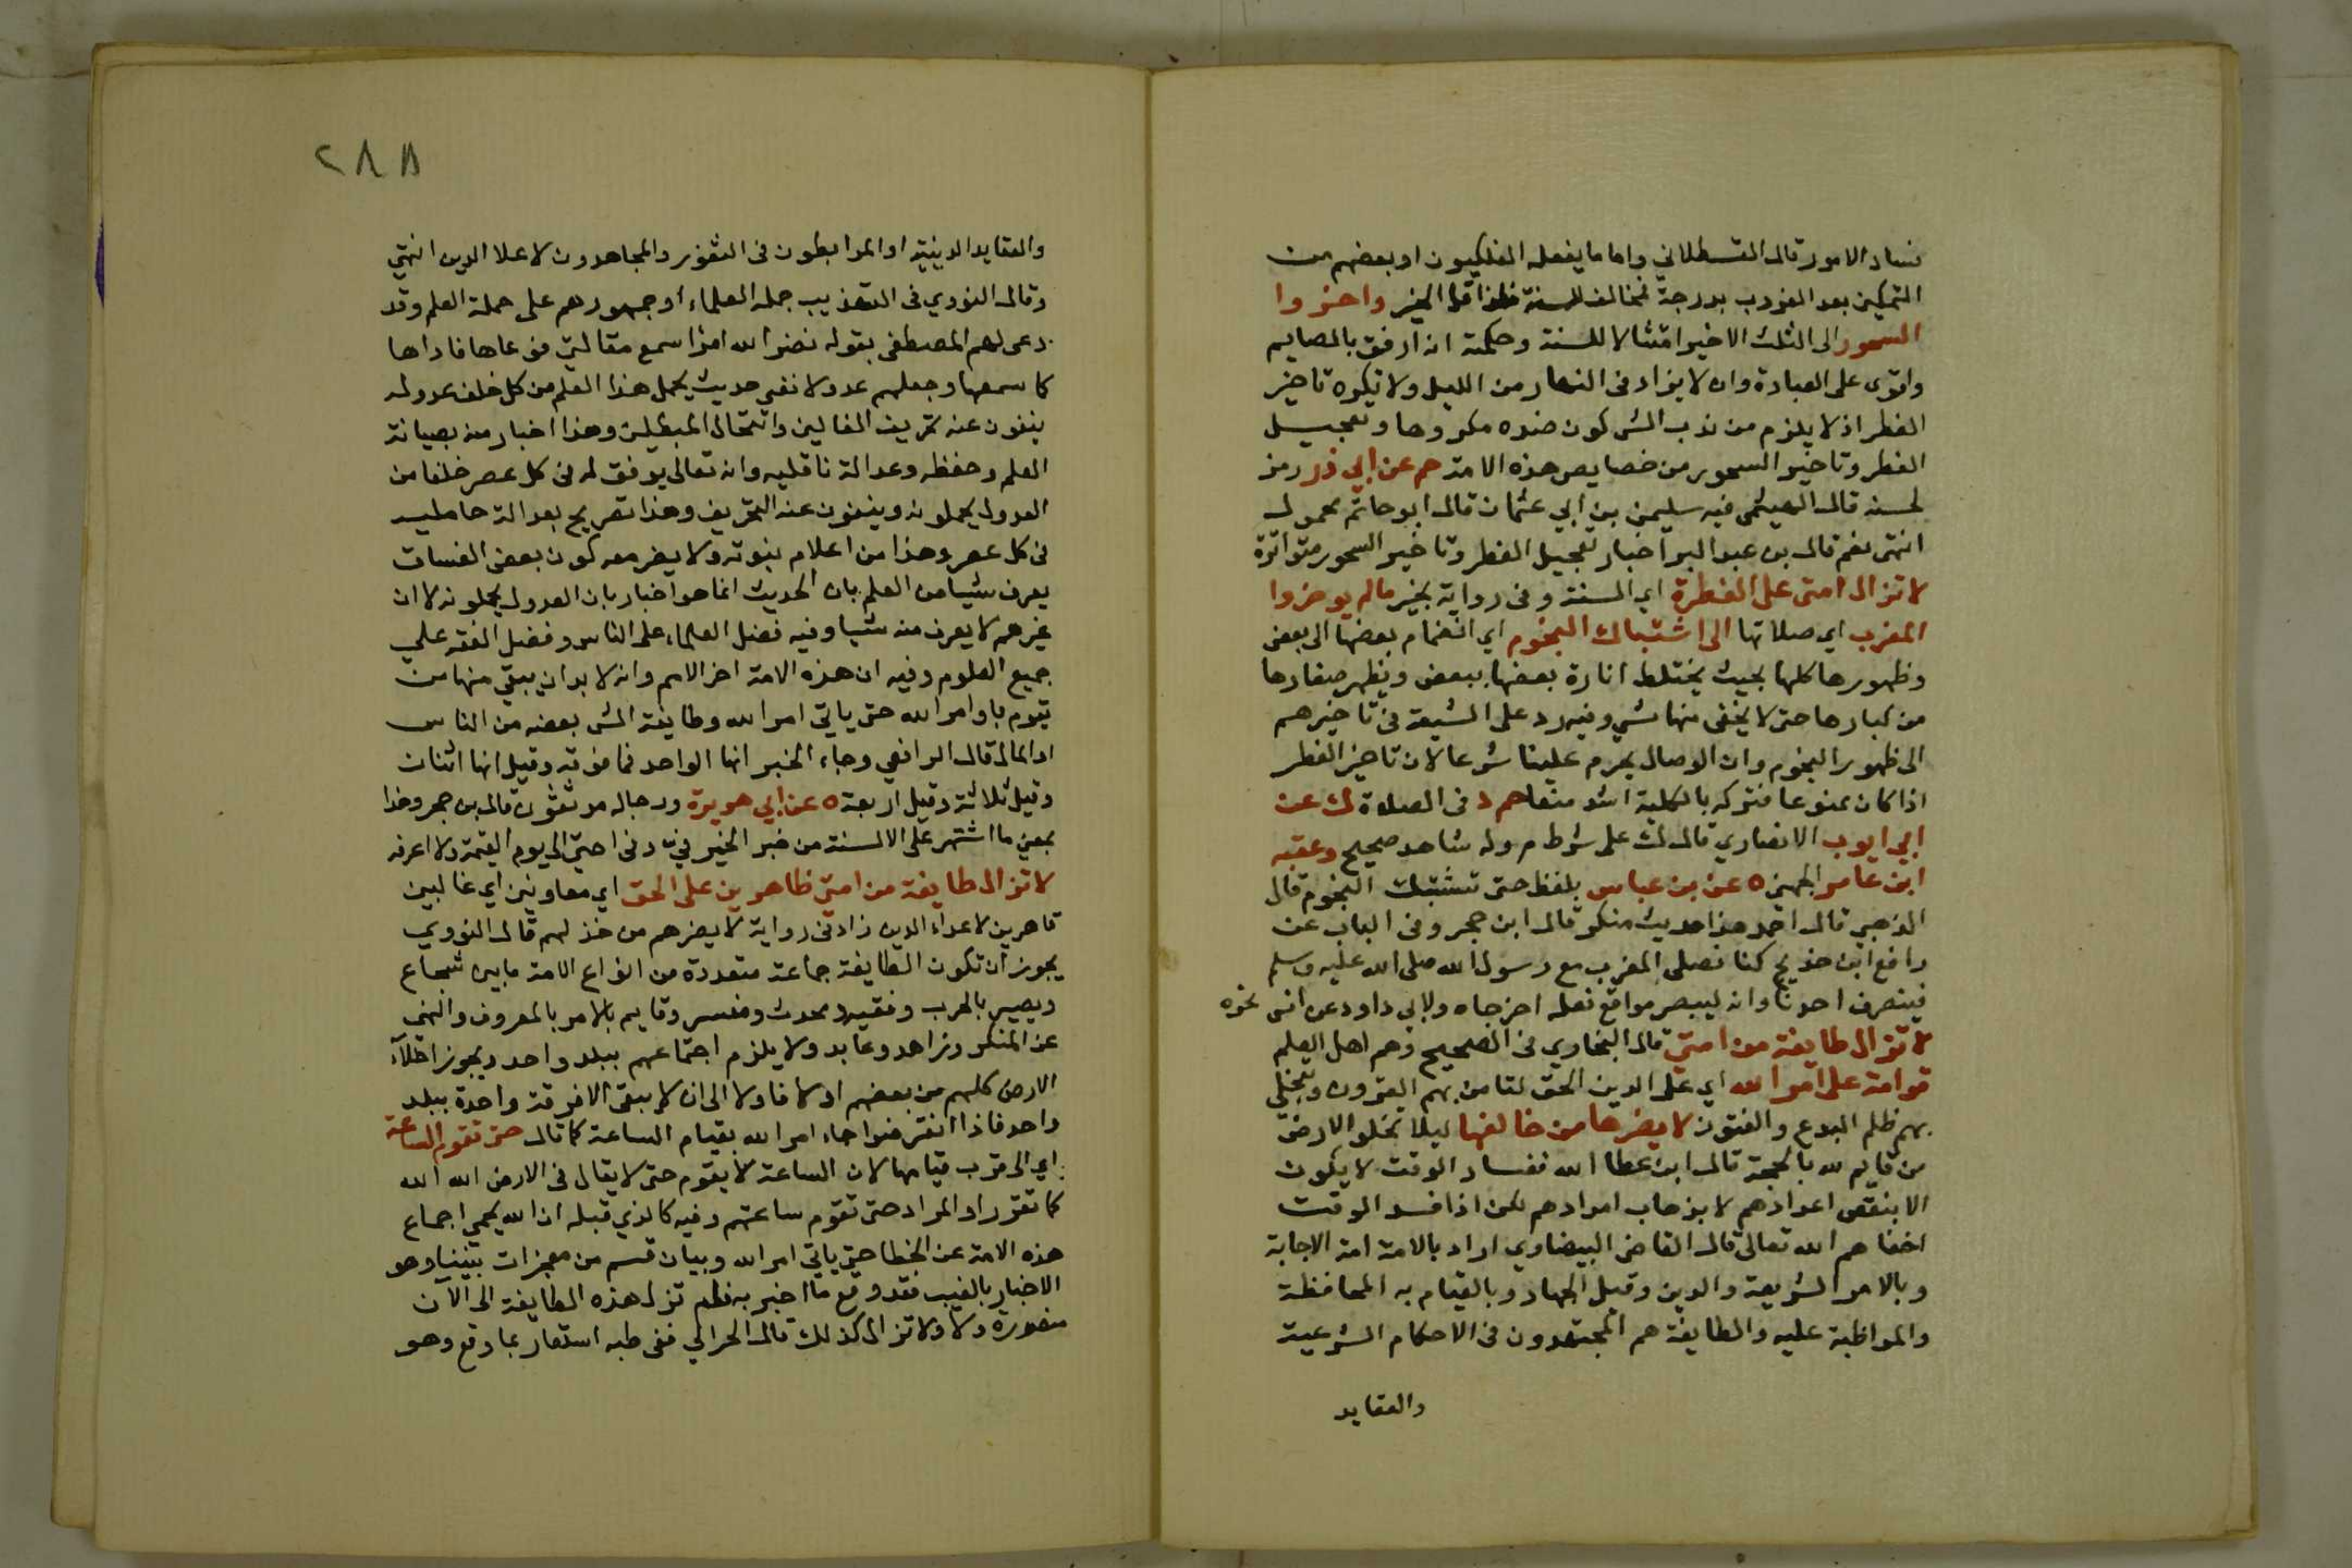 فساد الامور قال القسطلاني واما ما يفعله الفلكيون او بعضهم من
التمكين بعد الغروب بدرجة فمخالف للسنة فلذا قل الخير واخروا
السحور الى الثلث الاخير امتثالا للسنة وحكمته انه ارفق بالصايم
واقوى على العبادة وان لا يزاد في النهار من الليل ولا يكره تاخير
الفطر اذ لا يلزم من ندب الشي كون ضده مكروها وتعجيل
الفطر وتاخير السحور من خصايص هذه الامة حم عن ابي ذر رمز
لحسنه قال الهيثمي فيه سليمن بن ابي عثمان قال ابو حاتم مجهول
انتهى نعم قال بن عبد البر اخبار تعجيل الفطر وتاخير السحور متواترة
لا تزال امتي على الفطرة اي السنة وفي رواية بخير مالم يوخروا
المغرب اي صلاتها الى اشتباك النجوم اي انضمام بعضها الى بعض
وظهورها كلها بحيث يختلط انارة بعضها ببعض ويظهر صغارها
من كبارها حتى لا يخفى منها شي وفيه رد على الشيعة في تاخيرهم
الى ظهور النجوم وان الوصال يحرم علينا شرعا لان تاخير الفطر
اذا كان ممنوعا فتركه بالكلية اشد منعا حم د في الصلاة ك عن
ابي ايوب الانصاري قال ك على شرط م وله شاهد صحيح وعقبه
ابن عامر الجهني ه عن بن عباس بلفظ حتى تشتبك النجوم قال
الذهبي قال احمد هذا حديث منكر قال ابن حجر وفي الباب عن
رافع ابن خديج كنا نصلي المغرب مع رسول الله صلى الله عليه وسلم
فينصرف احدنا وانه ليبصر مواقع نعله اخرجاه ولابي داود عن انس نحوه
لا تزال طايفة من امتي قال البخاري في الصحيح وهم اهل العلم
قوامة على امر الله اي على الدين الحق لتامن بهم القرون وتنجلي
بهم ظلم البدع والفتون لا يضرها من خالفها ليلا تخلو الارض
من قايم لله بالحجة قال ابن عطا الله ففساد الوقت لا يكون
الا بنقص اعدادهم لا بذهاب امدادهم لكن اذا فسد الوقت
اخفاهم الله تعالى قال القاضي البيضاوي اراد بالامة امة الاجابة
وبالامر الشريعة والدين وقيل الجهاد وبالقيام به المحافظة
والمواظبة عليه والطايفة هم المجتهدون في الاحكام الشرعية
والعقايد
٢٨٨
والعقايد الدينية او المرابطون في الثغور والمجاهدون لاعلا الدين انتهى
وقال النووي في التهذيب جمله العلماء او جمهورهم على حملة العلم وقد
دعى لهم المصطفى بقوله نضر الله امرا سمع مقالتي فوعاها فاداها
كما سمعها وجعلهم عدولا ففي حديث يحمل هذا العلم من كل خلف عدوله
ينفون عنه تحريف الغالين وانتحال المبطلين وهذا اخبار منه بصيانة
العلم وحفظه وعدالة ناقليه وانه تعالى يوفق له في كل عصر خلفا من
العدول يحملونه وينفون عنه التحريف وهذا تصريح بعدالة حامليه
في كل عصر وهذا من اعلام نبوته ولا يضر معه كون بعض الفساق
يعرف شيا من العلم بان الحديث انما هو اخبار بان العدول يحملونه لا ان
غيرهم لا يعرف منه شيا وفيه فضل العلماء على الناس وفضل الفقه على
جميع العلوم وفيه ان هذه الامة اخر الامم وانه لا بد ان يبقى منها من
يقوم باوامر الله حتى ياتي امر الله وطايفة الشي بعضه من الناس
او المال قال الرافعي وجاء الخبر انها الواحد فما فوقه وقيل انها اثنان
وقيل ثلاثة وقيل اربعة ه عن ابي هريرة ورجاله موثقون قال بن حجر وهذا
بمعنى ما اشتهر على الالسنة من خبر الخير في وفي امتي الى يوم القيمة ولا اعرفه
لا تزال طايفة من امتي ظاهرين على الحق اي معاونين اي غالبين
قاهرين لاعداء الدين زاد في رواية لا يضرهم من خذلهم قال النووي
يجوز ان تكون الطايفة جماعة متعددة من انواع الامة ما بين شجاع
وبصير بالحرب وفقيه ومحدث ومفسر وقايم بالامر بالمعروف والنهي
عن المنكر وزاهد وعابد ولا يلزم اجتماعهم ببلد واحد ويجوز اخلاء
الارض كلهم من بعضهم اولا فاولا الى ان لا يبقى الا فرقة واحدة ببلد
واحد فاذا انقرضوا جاء امر الله بقيام الساعة كما قال حتى تقوم الساعة
اي الى قرب قيامها لان الساعة لا يقوم حتى لا يقال في الارض الله الله
كما تقرر او المراد حتى تقوم ساعتهم وفيه كالذي قبله ان الله يحمي اجماع
هذه الامة عن الخطا حتى ياتي امر الله وبيان قسم من معجزات نبينا وهو
الاخبار بالغيب فقد وقع ما اخبر به فلم تزل هذه الطايفة الى الآن
منصورة ولا ولا تزال كذلك قال الحرالي ففي طيه استعار بما وقع وهو